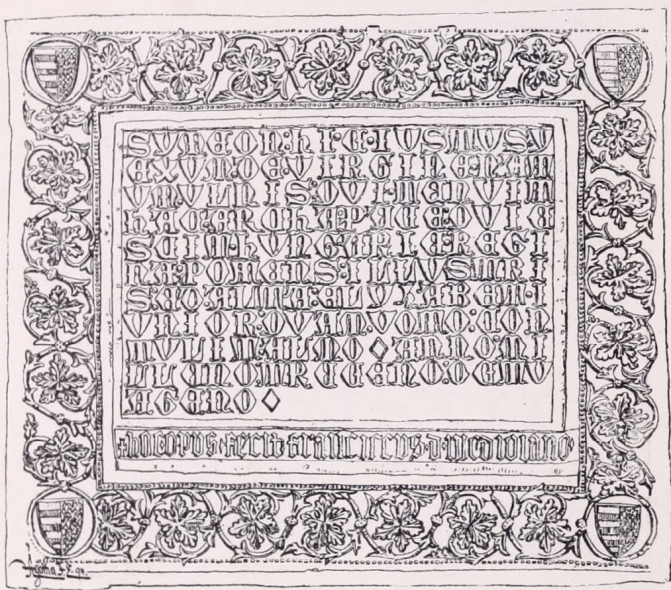 SYMEON:HIC·IVSTVS·Y
EXVM·DE·VIRGINE·NAT
VM·VLNIS:QVI·TENVIT
HAC·ARCHA·PACE·QVIE
SCIT·HVNGARIE·REGI
NA·POTENS:ILLVSTRI
S:ET·ALTA:ELYZABET·I
VNIOR:QVAM·VOTO:CON
TVLIT·ALMO ◇ ANNO·MI
LLENO·TRECENO:OCTV
AGENO ◇
+hoc·opus·fecit·franciscus·d·mediolano